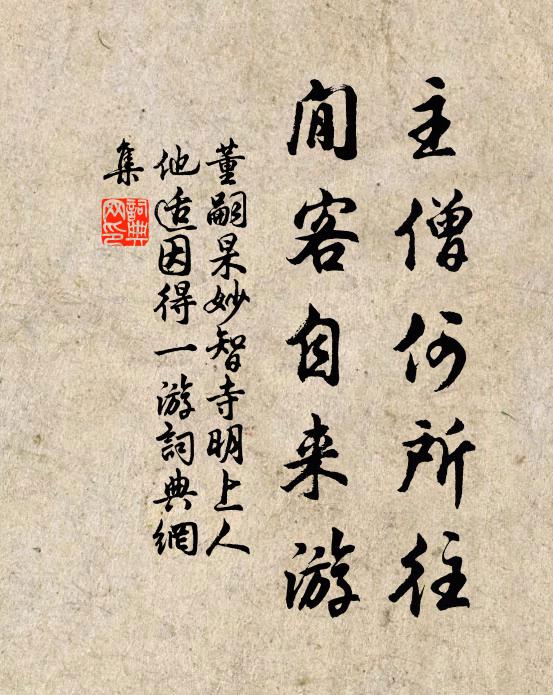 主僧何所往
閒客自来游
董嗣杲妙智寺明上人
他适因得一游詞典網
集
詞典網印